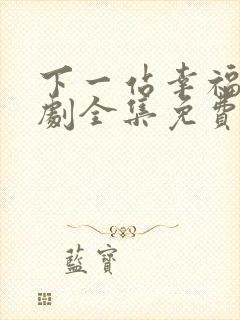 下一站幸福
劇全集免費
藍寶